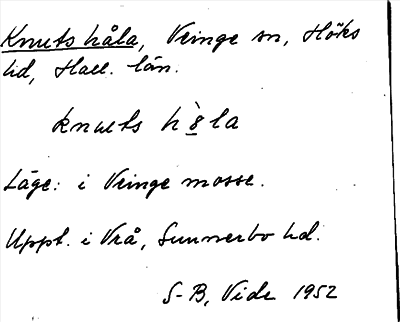 Knuts håla, Veinge sn, Höks
hd, Hall. län.
knuts h8̀la
Läge: i Veinge mosse.
Uppt. i Vrå, Sunnerbo hd.
S-B, Vide 1952